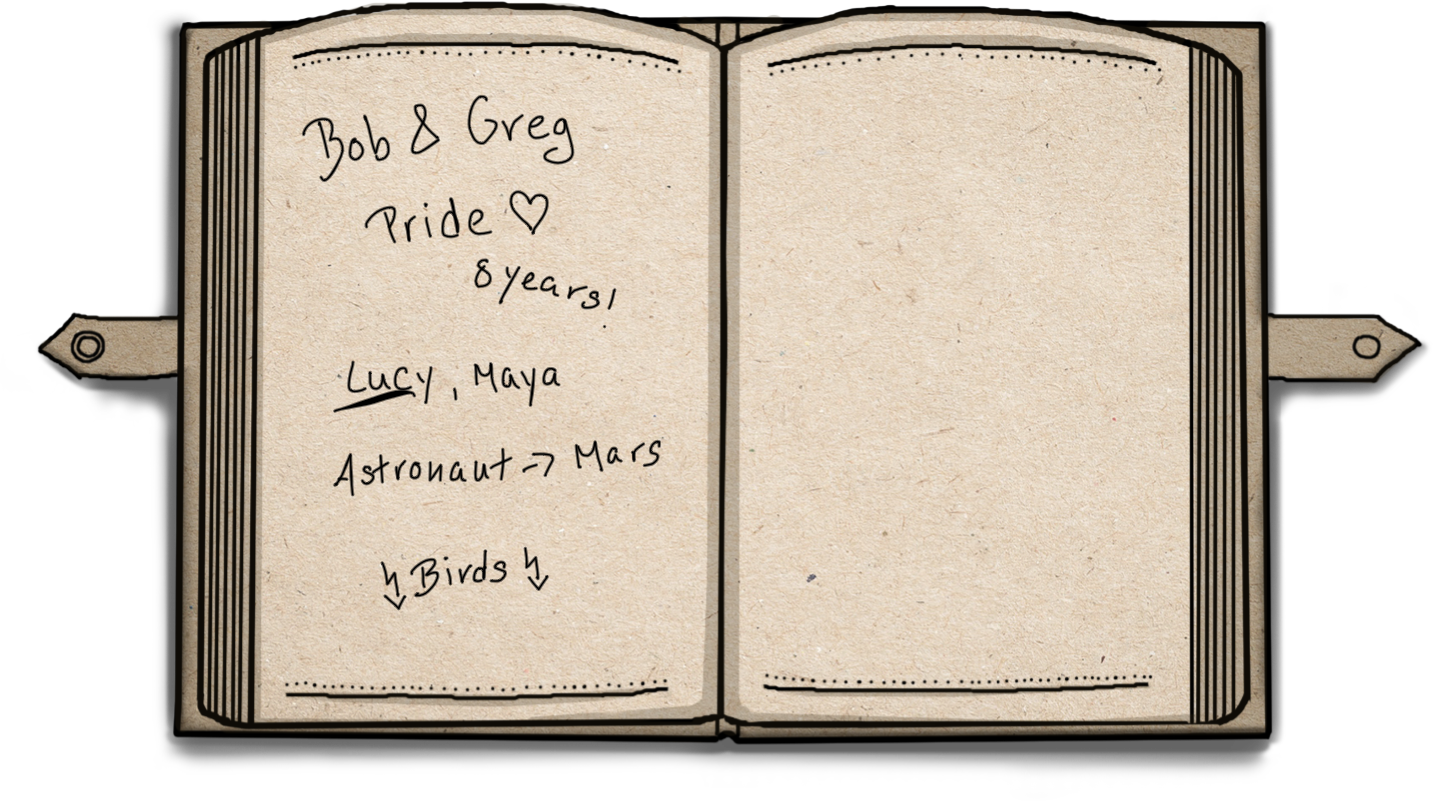 Bob & Greg
Pride ♡
8 years!
Lucy, Maya
Astronaut -> Mars
Birds